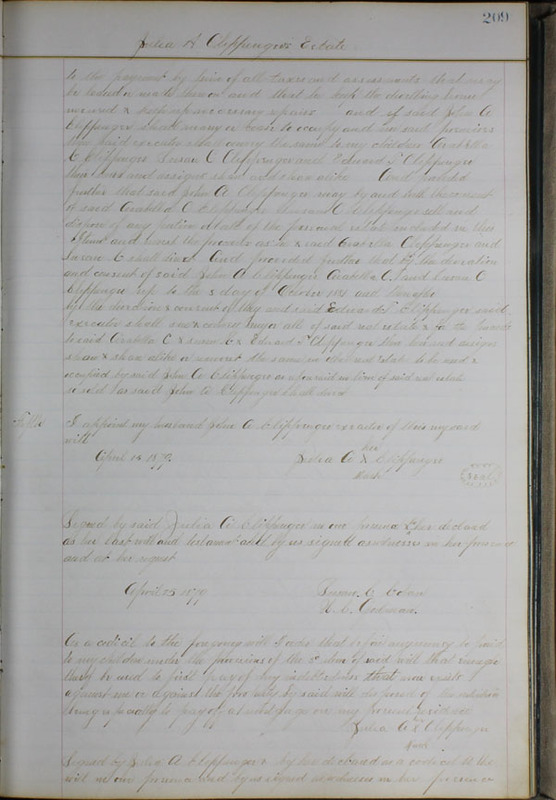 209
Julia A Clippinger's Estate
to the payment by him of all taxes and assessments that may
be levied or made thereon and that he keep the dwelling house
insured & make necessary repairs and if said John A
Clippinger shall marry or cease to occupy and use said premises
then said executor shall convey the same to my children Arabella
C Clippinger Susan C Clippinger and Edward T Clippinger
their heirs and assigns share and share alike And provided
further that said John A Clippinger may by and with the consent
of said Arabella C Clippinger & Susan C Clippinger sell and
dispose of any portion or all of the personal estate included in this
and invest the proceeds as he & said Arabella Clippinger and
Susan C shall direct And provided further that by the direction
and consent of said John A Clippinger Arabella C and Susan C
Clippinger up to the day of October 1881 and thereafter
by the direction & consent of they and said Edward T Clippinger said
executor shall sell & convey any or all of said real estate & to the
said Arabella C & Susan C & Edward T Clippinger their heirs and assigns
share & share alike or reinvest the same in other real estate to be used &
occupied by said John A Clippinger as aforesaid in lieu of said real estate
so sold as said John A Clippinger shall direct
Fifth
I appoint my husband John A Clippinger executor of this my said
will
April 25 1879
her
Julia A X Clippinger
Mark
Seal
Signed by said Julia A Clippinger in our presence & by her declared
as her last will and testament and by us signed as witnesses in her presence
and at her request
April 25 1879
Susan C
As a codicil to the foregoing will I order that before any money be paid
to my children under the provisions of the 3d item of said will that
be used to first pay off any indebtedness that may exist
against me or against the property by said will disposed of the intention
being especially to pay off a mortgage on my present residence
her
Julia A X Clippinger
Mark
Signed by Julia A Clippinger & by her declared as a codicil to the
will in our presence and by us signed as witnesses in her presence